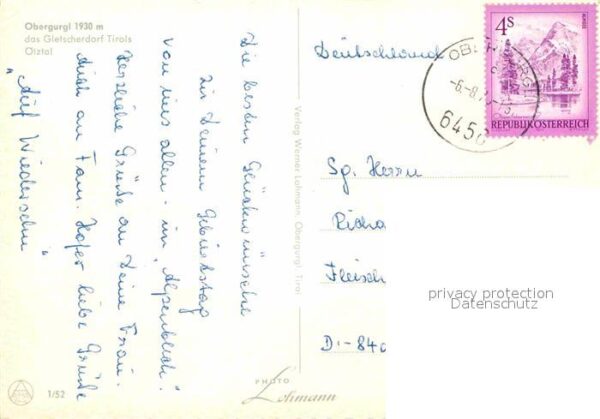 Obergurgl 1930 m
das Gletscherdorf Tirols
Ötztal
Die besten Glückwünsche
zu Deinem Geburtstag
von uns allen - im „Alpenblick“.
Herzliche Grüße an Deine Frau.
Auch an Fam. Hofer liebe Grüße
„Auf Wiedersehn“
1/52
Verlag Werner Lohmann, Obergurgl, Tirol
PHOTO
Lohmann
4s
REPUBLIK ÖSTERREICH
6456
Deutschland
Sg. Herrn
Richa
Fleisch
D-840
privacy protection
Datenschutz